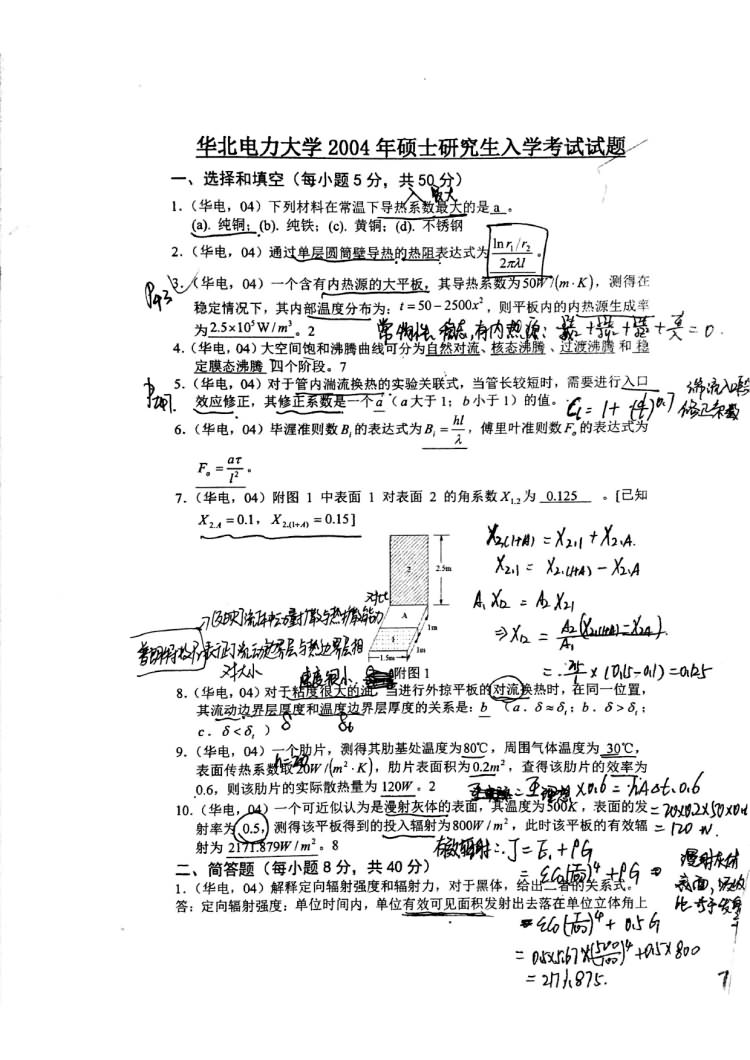 华北电力大学 2004 年硕士研究生入学考试试题
一、选择和填空(每小题 5 分,共 50 分)
最大
1.(华电,04)下列材料在常温下导热系数最大的是 a 。
(a). 纯铜; (b). 纯铁; (c). 黄铜; (d). 不锈钢
2.(华电,04)通过单层圆筒壁导热的热阻表达式为 ln r₁/r₂ / 2πλl 。
3.(华电,04)一个含有内热源的大平板,其导热系数为50W/(m·K),测得在
稳定情况下,其内部温度分布为:t = 50 − 2500x²,则平板内的内热源生成率
为2.5×10⁵W/m³。2
常物性、稳态,有内热源:
= 0
4.(华电,04)大空间饱和沸腾曲线可分为自然对流、核态沸腾、过渡沸腾 和 稳
定膜态沸腾 四个阶段。7
5.(华电,04)对于管内湍流换热的实验关联式,当管长较短时,需要进行入口
效应修正,其修正系数是一个a(a大于1;b小于1)的值。
Cₗ = 1 + (d/l)^0.7
修正系数
6.(华电,04)毕渥准则数Bᵢ的表达式为Bᵢ = hl/λ,傅里叶准则数Fₒ的表达式为
Fₒ = aτ/l² 。
7.(华电,04)附图 1 中表面 1 对表面 2 的角系数X₁,₂为 0.125 。[已知
X₂,A = 0.1, X₂,(1+A) = 0.15]
X₂,(1+A) = X₂,₁ + X₂,A.
X₂,₁ = X₂,(1+A) − X₂,A
A₁X₁₂ = A₂X₂₁
⇒ X₁₂ = A₂(X₂,(1+A) − X₂,A) / A₁
× (0.15−0.1) = 0.125
2
2.5m
A
1m
1
1m
1.5m
附图 1
8.(华电,04)对于粘度很大的油,当进行外掠平板的对流换热时,在同一位置,
其流动边界层厚度和温度边界层厚度的关系是:b (a.δ≈δₜ;b.δ>δₜ;
c.δ<δₜ)
9.(华电,04)一个肋片,测得其肋基处温度为80℃,周围气体温度为 30℃,
表面传热系数取20W/(m²·K),肋片表面积为0.2m²,查得该肋片的效率为
0.6,则该肋片的实际散热量为 120W。2
×0.6 = hAΔt·0.6
= 20×0.2×50×0.6
= 120 W.
10.(华电,04)一个可近似认为是漫射灰体的表面,其温度为500K,表面的发
射率为 0.5,测得该平板得到的投入辐射为800W/m²,此时该平板的有效辐
射为 2171.879W/m²。8
有效辐射:J = E₁ + ρG
二、简答题(每小题 8 分,共 40 分)
1.(华电,04)解释定向辐射强度和辐射力,对于黑体,给出二者的关系式。
答:定向辐射强度:单位时间内,单位有效可见面积发射出去落在单位立体角上
= εC₀(T/100)⁴ + 0.5G
= 0.5×5.67×(500/100)⁴ + 0.5×800
= 2171.875.
7